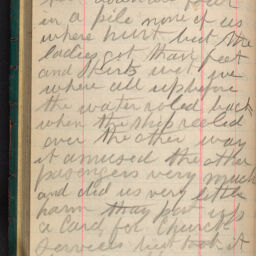 in a pile none of us
where hurt but the
ladies got thair feet
and skirts wet we
where all up before
the water roled back
when the ship reeled
over the other way
it amused the other
pasengers very much
and did us very little
harm thay put up
a card for Church
services but took it